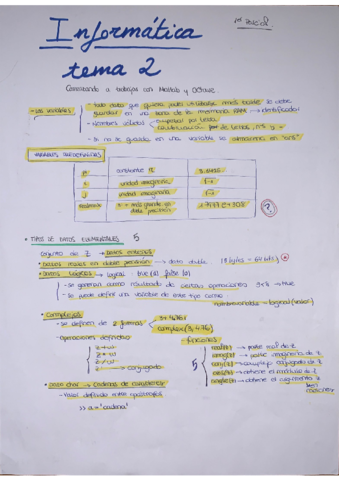 1º Parcial
Informática
tema 2
Comenzando a trabajar con Matlab y Octave.
- Las variables
- todo dato que quiera poder utilizarse más tarde se debe
guardar en una zona de la memoria RAM → identificador
- Nombres válidos
empezar por letra
de letras, nºs y -
- Si no se guarda en una variable se almacena en "ans"
VARIABLES PREDEFINIDAS
pi
constante π
3.1416
i
unidad imaginaria
√-1
j
unidad imaginaria
√-1
realmax
nº más grande en
doble precisión
1.7977 E+308
?
• TIPOS DE DATOS ELEMENTALES 5
conjunto de Z → datos enteros
• Datos reales en doble precisión → dato double (8 bytes - 64 bits)
• Datos lógicos → logical true (1) false (0)
- Se generan como resultado de ciertas operaciones 3<8 → true
- Se puede definir una variable de este tipo como
nombrevariable = logical(valor)
• Complejos
- se definen de 2 formas
3+4.76i
complex(3, 4.76)
- Operaciones definidas
z+w
z-w
z*w
z/w
z' → conjugado
- funciones
5
real(z) → parte real de z
imag(z) → parte imaginaria de z
conj(z) → complejo conjugado de z
abs(z) → obtiene el módulo de z
angle(z) → obtiene el argumento z
• Dato char → cadenas de caracteres
- Valor definido entre apóstrofos
>> a = 'cadena'